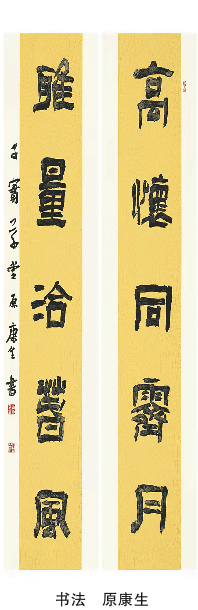 高懷同霽月
雅量洽春風
原康生書
书法　原康生